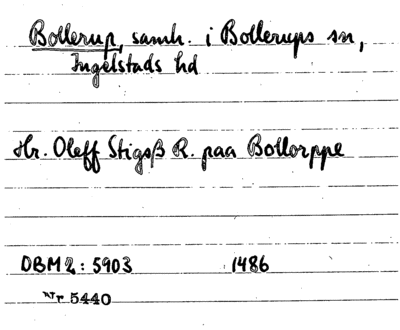 Bollerup, samh. i Bollerups sn,
Ingelstads hd
Hr. Oleff Stigsß R. paa Bollorppe
DBM 2: 5903 1486
Nr 5440